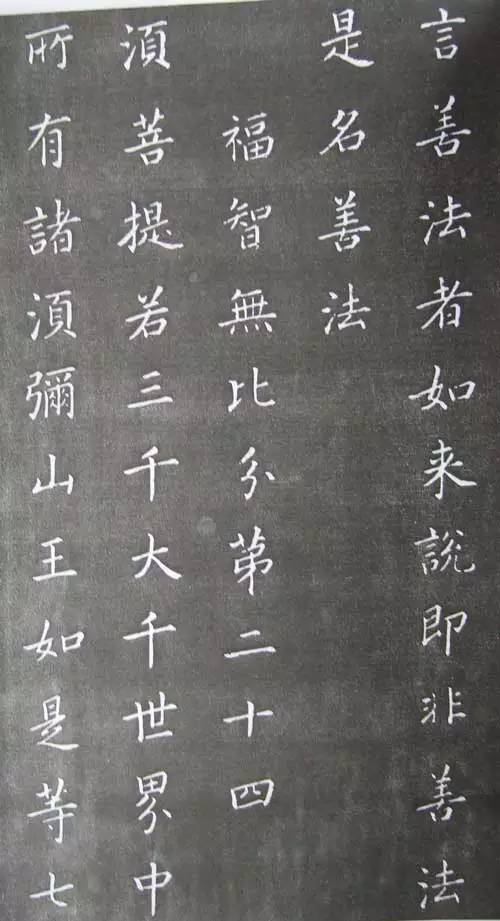 言善法者如来説即非善法
是名善法
福智無比分第二十四
湏菩提若三千大千世界中
所有諸湏彌山王如是等七